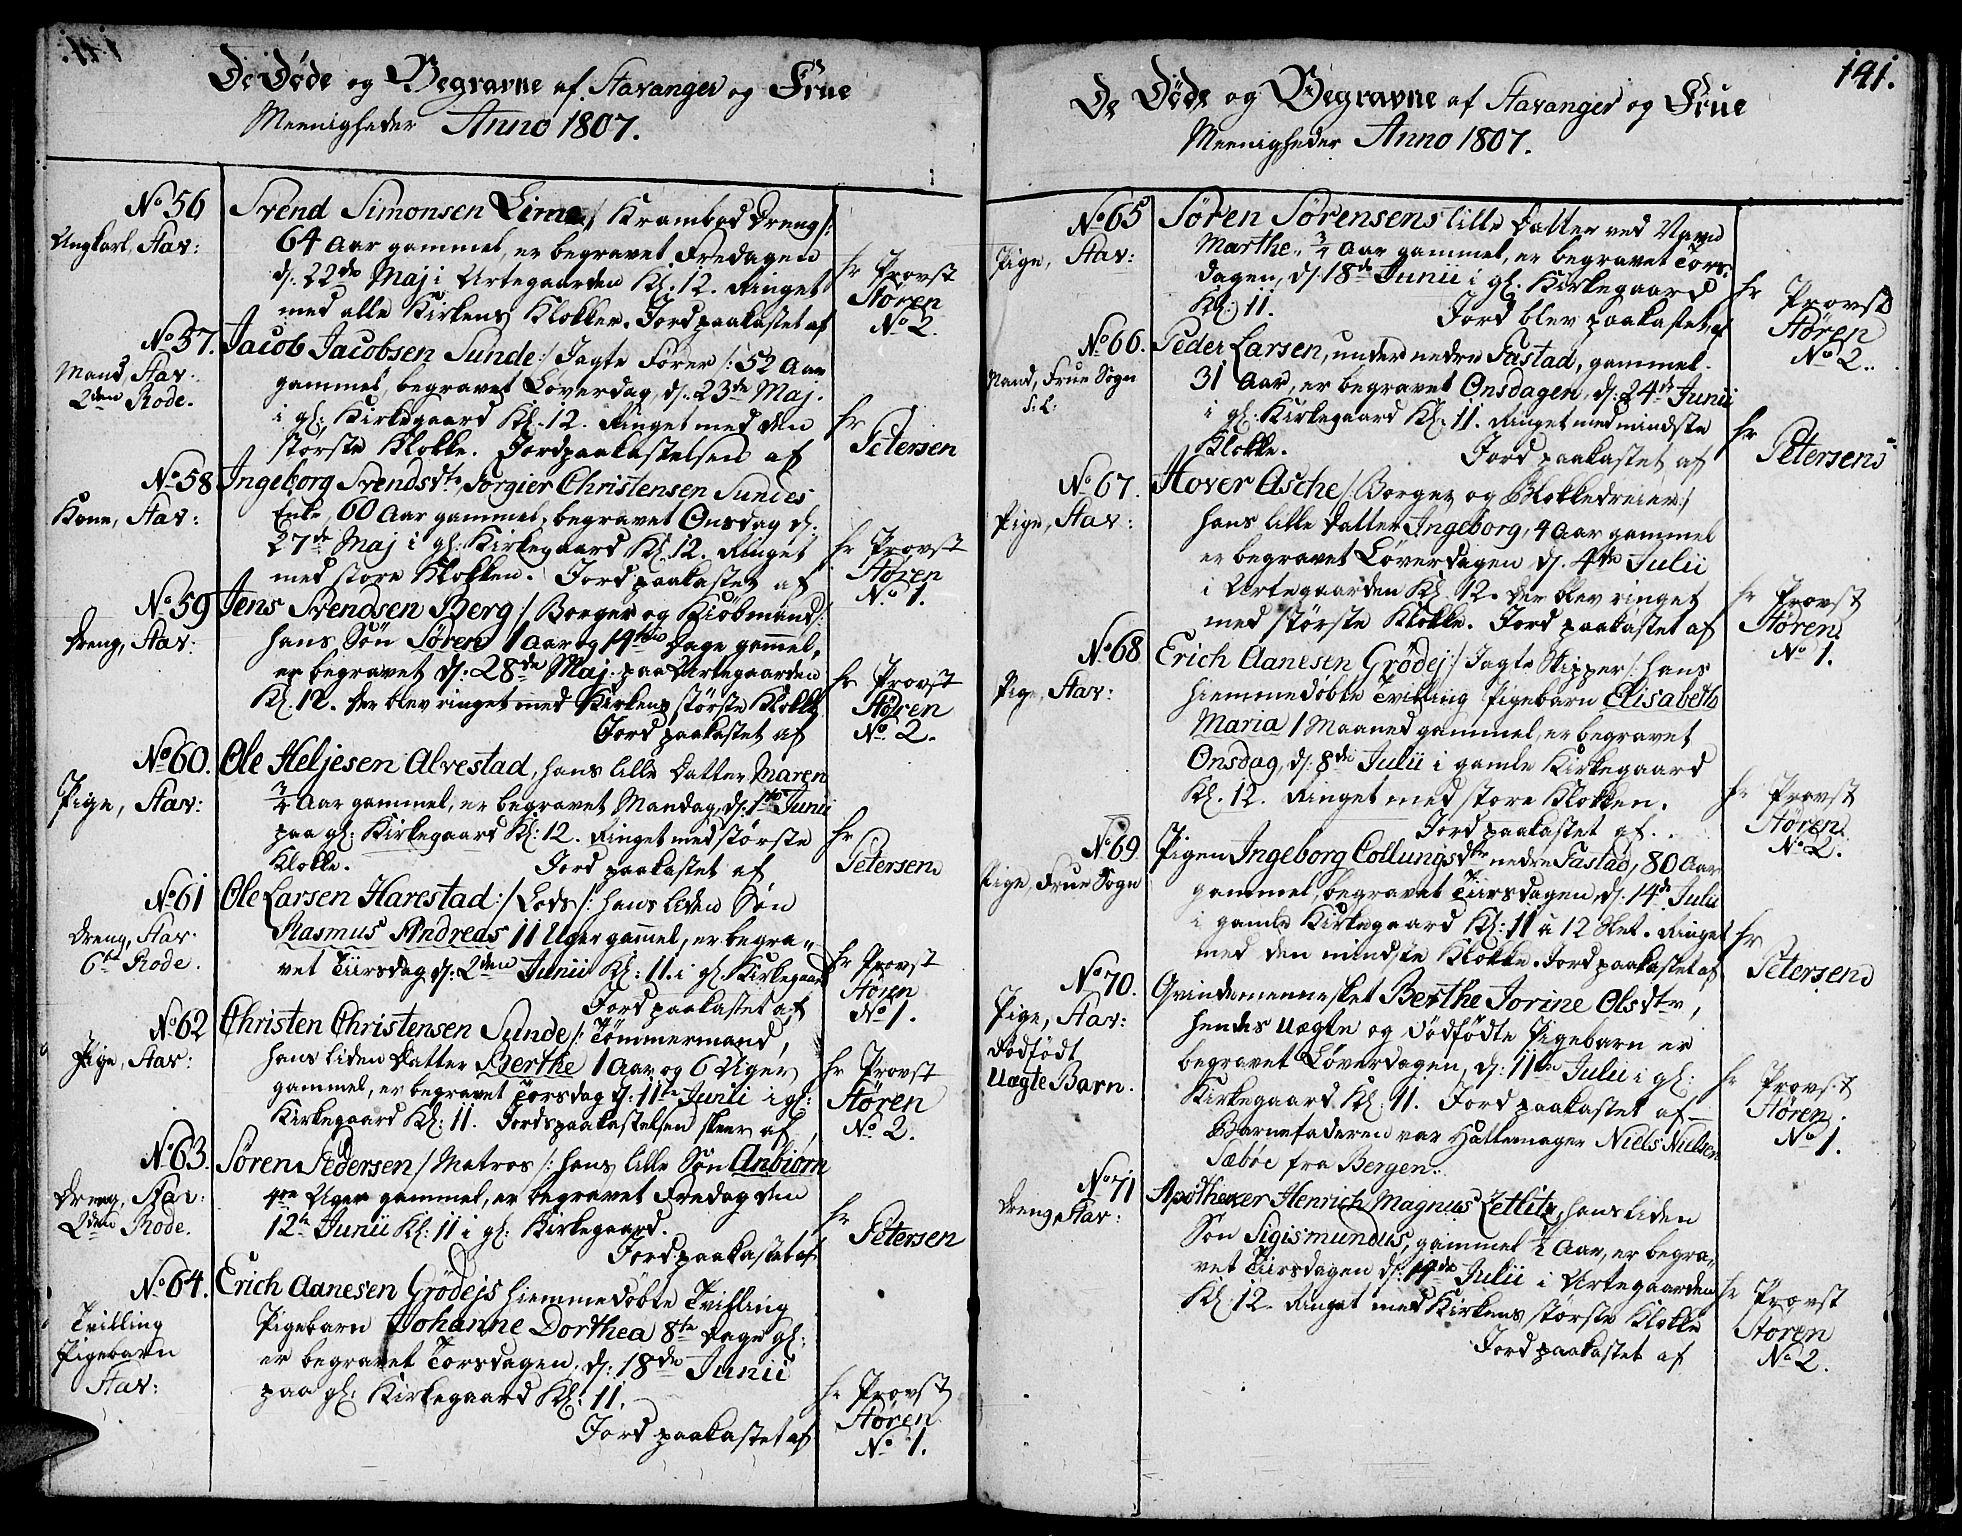 De Døde og Begravne af Stavanger og Frue
Meenigheder Anno 1807.
No 56
Ungkarl, Stav:
Svend Simonsen Lima /: Krambod Dreng :/
64 Aar gammel, er begravet Fredagen
d: 22de Maj i Urtegaarden Kl. 12. Ringet
med alle Kirkens Klokker. Jord paakastet af
hr Provst
Støren
No 2.
No 57.
Mand, Stav.
2den Rode.
Jacob Jacobsen Sunde /: Jagte Fører :/ 52 Aar
gammel, begravet Løverdag, d: 23de Maj.
i gl: Kirkegaard Kl. 12. Ringet med den
største Klokke. Jordpaakastelsen af
hr
Petersen
No 58
Kone, Stav:
Ingeborg Svendsdtr, Sørgier Christensen Sundes
Enke, 60 Aar gammel, begravet Onsdag d:
27de Maj i gl: Kirkegaard Kl. 12. Ringet
med store Klokken. Jord paakastet af
hr Provst
Støren
No 1.
No 59
Dreng, Stav:
Jens Svendsen Berg /: Borger og Kiöbmand :/
hans Søn Søren 1 Aar og 14 Dage gamel,
er begravet d: 28de Maj. paa Urtegaarden
Kl. 12. der blev ringet med Kirkens største Klokke
Jord paakastet af
hr Provst
Støren
No 2.
No 60.
Pige, Stav:
Ole Heljesen Alvestad, hans lille Datter Maren
3/4 Aar gammel, er begravet Mandag, d: 1te Junii
paa gl: Kirkegaard Kl: 12. Ringet med største
Klokke. Jord paakastet af
hr
Petersen
No 61
Dreng, Stav.
6te Rode.
Ole Larsen Harestad /: Lods :/ hans liden Søn
Rasmus Andreas 11 Uger gamel, er begra-
vet Tiirsdag d: 2den Junii Kl: 11. i gl. Kirkegaard
Jord paakastet af
hr Provst
Støren
No 1.
No 62
Pige, Stav:
Christen Christensen Sunde /: Tömmermand,
hans liden Datter Berthe 1 Aar og 6 Uger
gammel, er begravet Torsdag d: 11te Junii i gl:
Kirkegaard Kl: 11. Jordspaakastelsen skeer af
hr Provst
Støren
No 2.
No 63.
Dreng, Stav:
2den Rode.
Søren Pedersen /: Matros :/ hans lille Søn Anbiørn
Uger gammel, er begravet Fredag den
12te Junii Kl: 11 i gl: Kirkegaard.
Jord paakastet af
hr
Petersen
No 64.
Tvilling
Pigebarn
Stav:
Erich Aanesen Grödejs hiemmedøbte Tvilling
Pigebarn Johanne Dorthea 8te Dage gl:
er begravet Torsdagen, d: 18de Junii
paa gl: Kirkegaard Kl: 11.
Jord paakastet af
hr Provst
Støren
No 1.
141.
De Døde og Begravne af Stavanger og Frue
Meenigheder Anno 1807.
No 65
Pige, Stav:
Søren Sørensens lille Datter ved Navn
Marthe, 3/4 Aar gammel, er begravet Tors-
dagen, d: 18de Junii i gl. Kirkegaard
Kl. 11. Jord blev paakastet af
hr Provst
Støren
No 2.
No 66.
Mand, Frue Sogn
Peder Larsen, under nedre Tastad, gammel
31 Aar, er begravet Onsdagen, d: 24de Junii
i gl: Kirkegaard Kl. 11. Ringet med mindste
Klokke. Jord paakastet af
hr
Petersens
No 67.
Pige, Stav:
Hover Asche /: Borger og Blokkedreier :/
hans lille Datter Ingeborg, 4 Aar gammel
er begravet Løverdagen d. 4de Julii
i Urtegaarden Kl. 12. der blev ringet
med største Klokke. Jord paakastet af
hr Provst
Støren.
No 1.
No 68
Pige, Stav:
Erich Aanesen Grödej /: Jagte Skipper :/ hans
hiemmedøbte Tvilling Pigebarn Elisabeth
Maria 1 Maaned gammel, er begravet
Onsdag, d: 8de Julii i gamle Kirkegaard
Kl. 12. Ringet med store Klokken.
Jord paakastet af
hr Provst
Støren.
No 2.
No 69
Pige, Frue Sogn
Pigen Ingeborg Collungsdtr nedre Tastad, 80 Aar
gammel, begravet Tiirsdagen, d: 14de Julii
i gamle Kirkegaard Kl: 11 a 12 Slet. Ringet
med den mindste Klokke. Jord paakastet af
hr
Petersen
No 70.
Pige, Stav:
Dødfödt
Uægte Barn.
Qvindemennesket Berthe Jorine Olsdtr,
hendes uægte og dödfödte Pigebarn er
begravet Løverdagen, d: 11te Julii i gl:
Kirkegaard Kl: 11. Jord paakastet af
Barnefaderen var Hattemager Niels Nielsen
Sæbøe fra Bergen.
hr Provst
Støren.
No 1.
No 71
Dreng Stav:
Apotheker Henrich Magnus Zetlitz, hans liden
Søn Sigismundus, gammel 1/2 Aar, er begra-
vet Tiirsdagen d: 14de Julii i Urtegaarden
Kl: 12. Ringet med Kirkens største Klokke
Jord paakastet af
hr Provst
Støren
No 2.